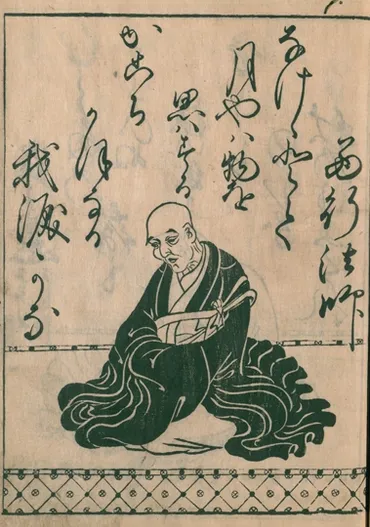 西行法師
なけゝとて
月やハ物を
思ハする
かこち
かほなる
我涙かな